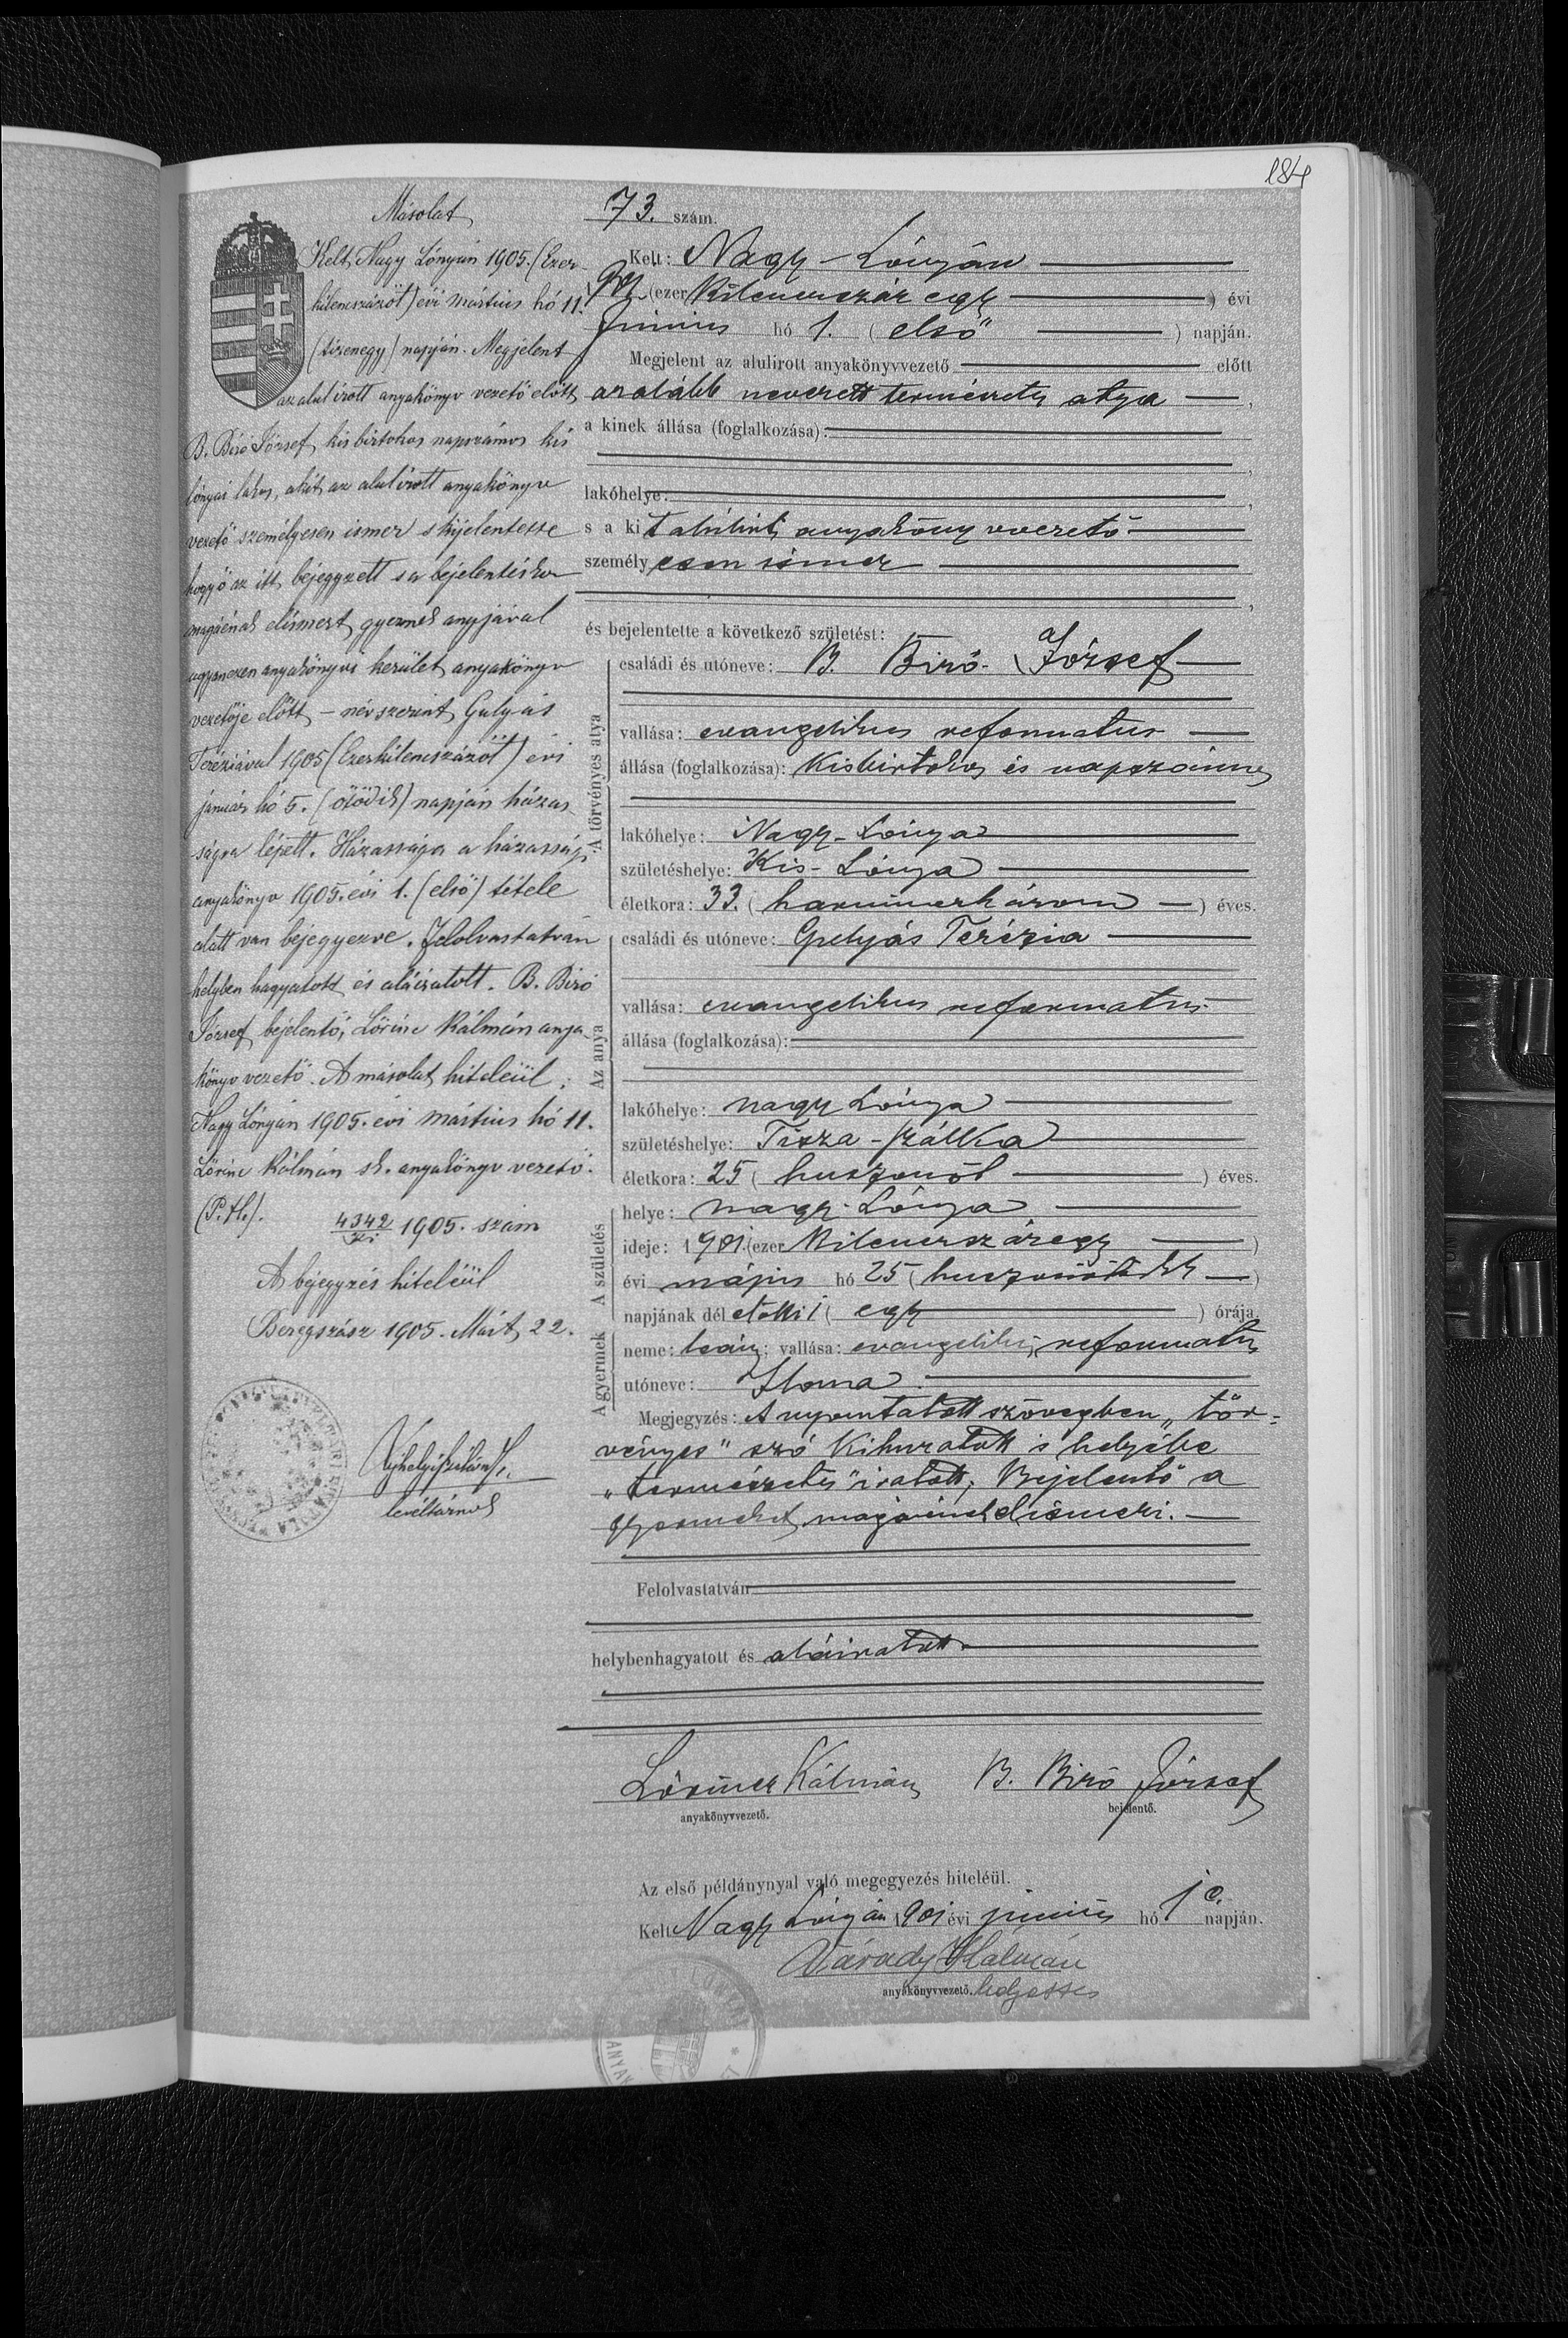 184
Másolat
Kelt, Nagy Lónyán 1905. (Ezer
kilenczszázöt) évi mártius hó 11.
(tizenegy) napján. Megjelent
az alulirott anyakönyv vezető előtt,
B. Biró József, kis birtokos napszámos kis
lónyai lakos, akit az alulirott anyakönyv
vezető személyesen ismer s kijelentette
hogy ő az itt bejegyzett s a bejelentéskor
magáénak elismert gyermek anyjával
ugyanezen anyakönyvi kerület anyakönyv
vezetője előtt, – névszerint Gulyás
Teréziával 1905 (Ezerkilencszázöt) évi
január hó 5. (ötödik) napján házas
ságra lépett. Házassága a házassági
anyakönyv 1905. évi 1. (első) tétele
alatt van bejegyezve. Felolvastatván
helyben hagyatott és aláiratott. B. Biró
József bejelentő, Lőrinc Kálmán anya
könyv vezető. A másolat hiteléül,
Nagy Lónyán 1905. évi mártius hó 11.
Lőrinc Kálmán sk. anyakönyv vezető.
(P. H.).
4342 1905. szám
A bejegyzés hiteléül
Beregszász 1905. Márt, 22.
levéltárnok
73. szám.
Kelt: Nagy-Lónyán
(ezer kilenczszáz egy) évi
Junius hó 1. (első) napján.
Megjelent az alulirott anyakönyvvezető előtt
az alább nevezett természetes atya,
a kinek állása (foglalkozása):
lakóhelye:
s a kit alulirt anyakönyvvezető
személyesen ismer
és bejelentette a következő születést:
A törvényes atya
családi és utóneve: B. Biró József
vallása: evangelikus reformatus
állása (foglalkozása): Kisbirtokos és napszámos
lakóhelye: Nagy-Lónya
születéshelye: Kis-Lónya
életkora: 33. (harminczhárom) éves.
Az anya
családi és utóneve: Gulyás Terézia
vallása: evangelikus reformatus
állása (foglalkozása):
lakóhelye: nagy Lónya
születéshelye: Tisza-szálka
életkora: 25 (huszonöt) éves.
A születés
helye: nagy-Lónya
ideje: 1901. (ezer kilenczszázegy)
évi május hó 25 (huszonötödik)
napjának dél előtti 1 (egy) órája
A gyermek
neme: leány; vallása: evangelikus reformatus
utóneve: Ilona
Megjegyzés: A nyomtatott szövegben „tör-
vényes" szó kihuzatott s helyébe
„természetes" iratott; Bejelentő a
gyermeket magáénak elismeri.
Felolvastatván
helybenhagyatott és aláiratott
Lőrincz Kálmán B. Biró József
anyakönyvvezető. bejelentő.
Az első példánynyal való megegyezés hiteléül.
Kelt Nagy Lónyán 1901 évi junius hó 1 napján.
Várady Kálmán
anyakönyvvezető. helyettes